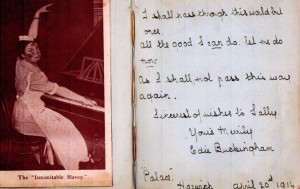 The "Inimitable Slavey."
I shall pass through this world but
once.
All the good I can do. let me do
now
As I shall not pass this way
again.
Sincerest wishes to Sally.
Yours Merrily
Edie Buckingham
"Palace"
Norwich April 20th 1914